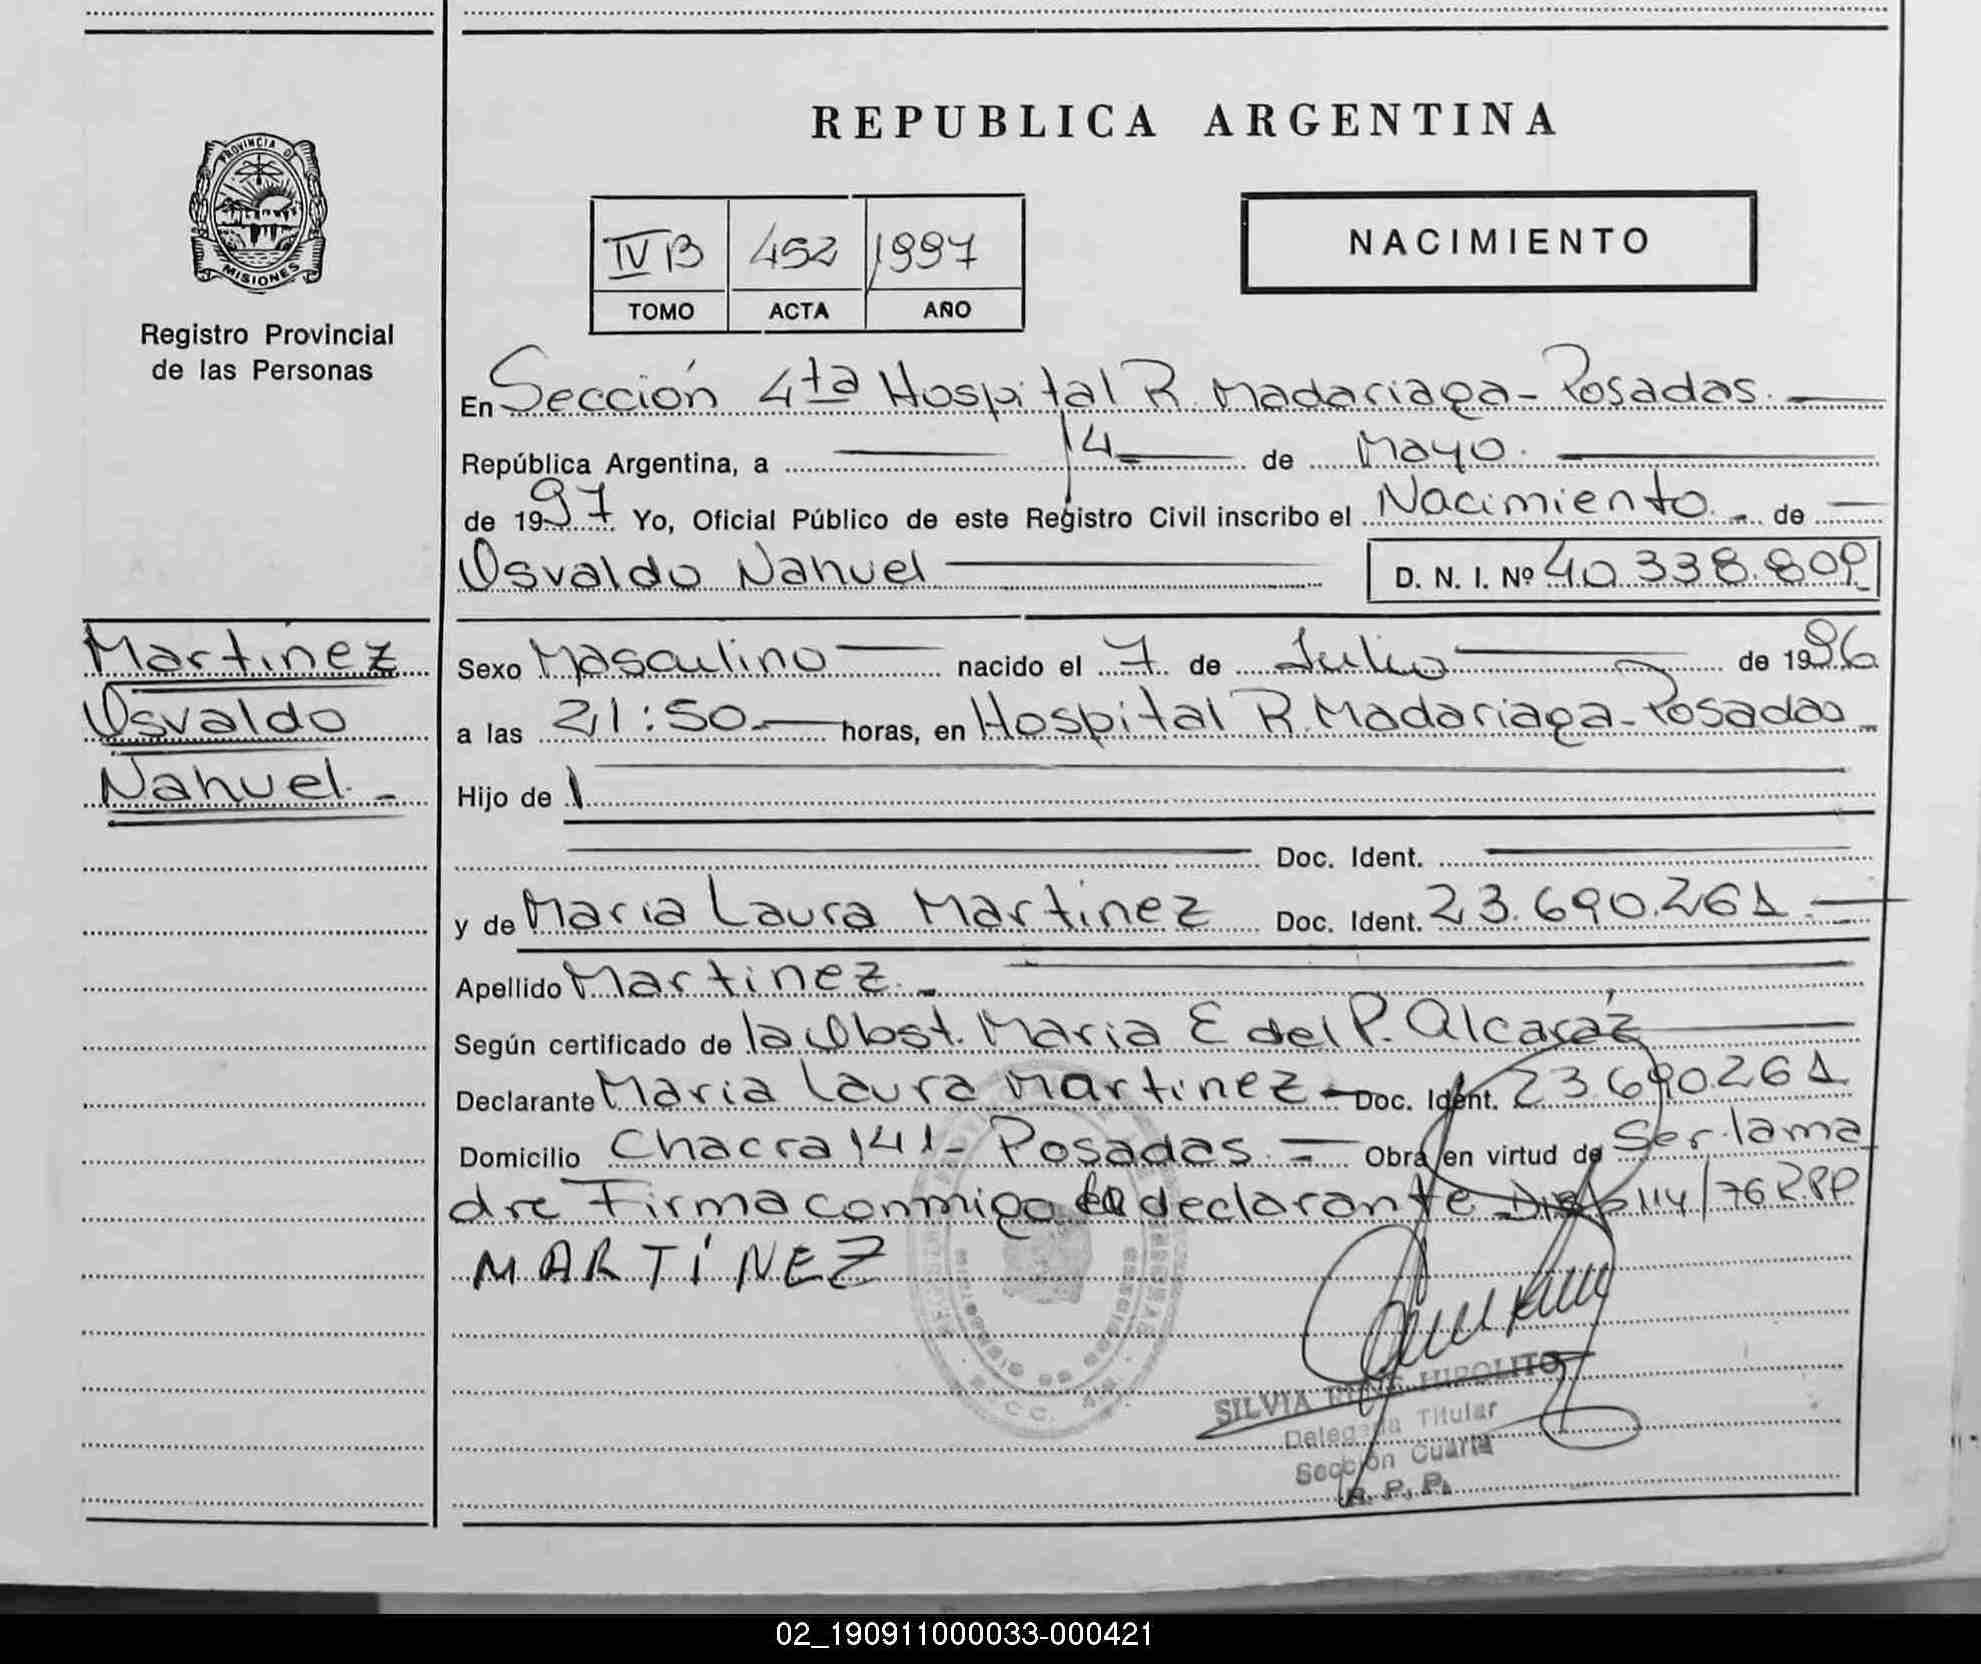 REPUBLICA ARGENTINA
PROVINCIA DE
MISIONES
Registro Provincial
de las Personas
IV B 452 1997
TOMO ACTA AÑO
NACIMIENTO
En Sección 4ta Hospital R. Madariaga - Posadas.
República Argentina, a 14 de Mayo.
de 1997 Yo, Oficial Público de este Registro Civil inscribo el Nacimiento de
Osvaldo Nahuel D. N. I. Nº 40.338.809
Martinez
Osvaldo
Nahuel.-
Sexo Masculino nacido el 7 de Julio de 1996
a las 21:50 horas, en Hospital R. Madariaga - Posadas
Hijo de
Doc. Ident.
y de Maria Laura Martinez Doc. Ident. 23.690.261
Apellido Martinez.-
Según certificado de la Obst. Maria E del P. Alcaráz
Declarante Maria Laura Martinez - Doc. Ident. 23.690.261
Domicilio Chacra 141 - Posadas. - Obra en virtud de Ser la ma
dre Firma conmigo la declarante Disp 114/76 R.P.P
MARTÍNEZ
SILVIA HIPOLITO
Delegada Titular
Sección Cuarta
R. P. P.
02_190911000033-000421